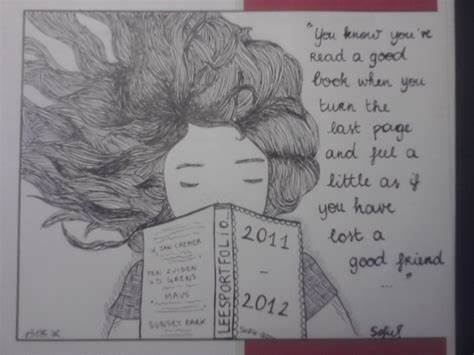 "You know you've
read a good
book when you
turn the
last page
and feel a
little as if
you have
lost a
good friend
..."
IK JAN CREMER
TEN ZUIDEN
V.D. GRENS
MAUS
SUNSET PARK
LEESPORTFOLIO
2011
-
2012